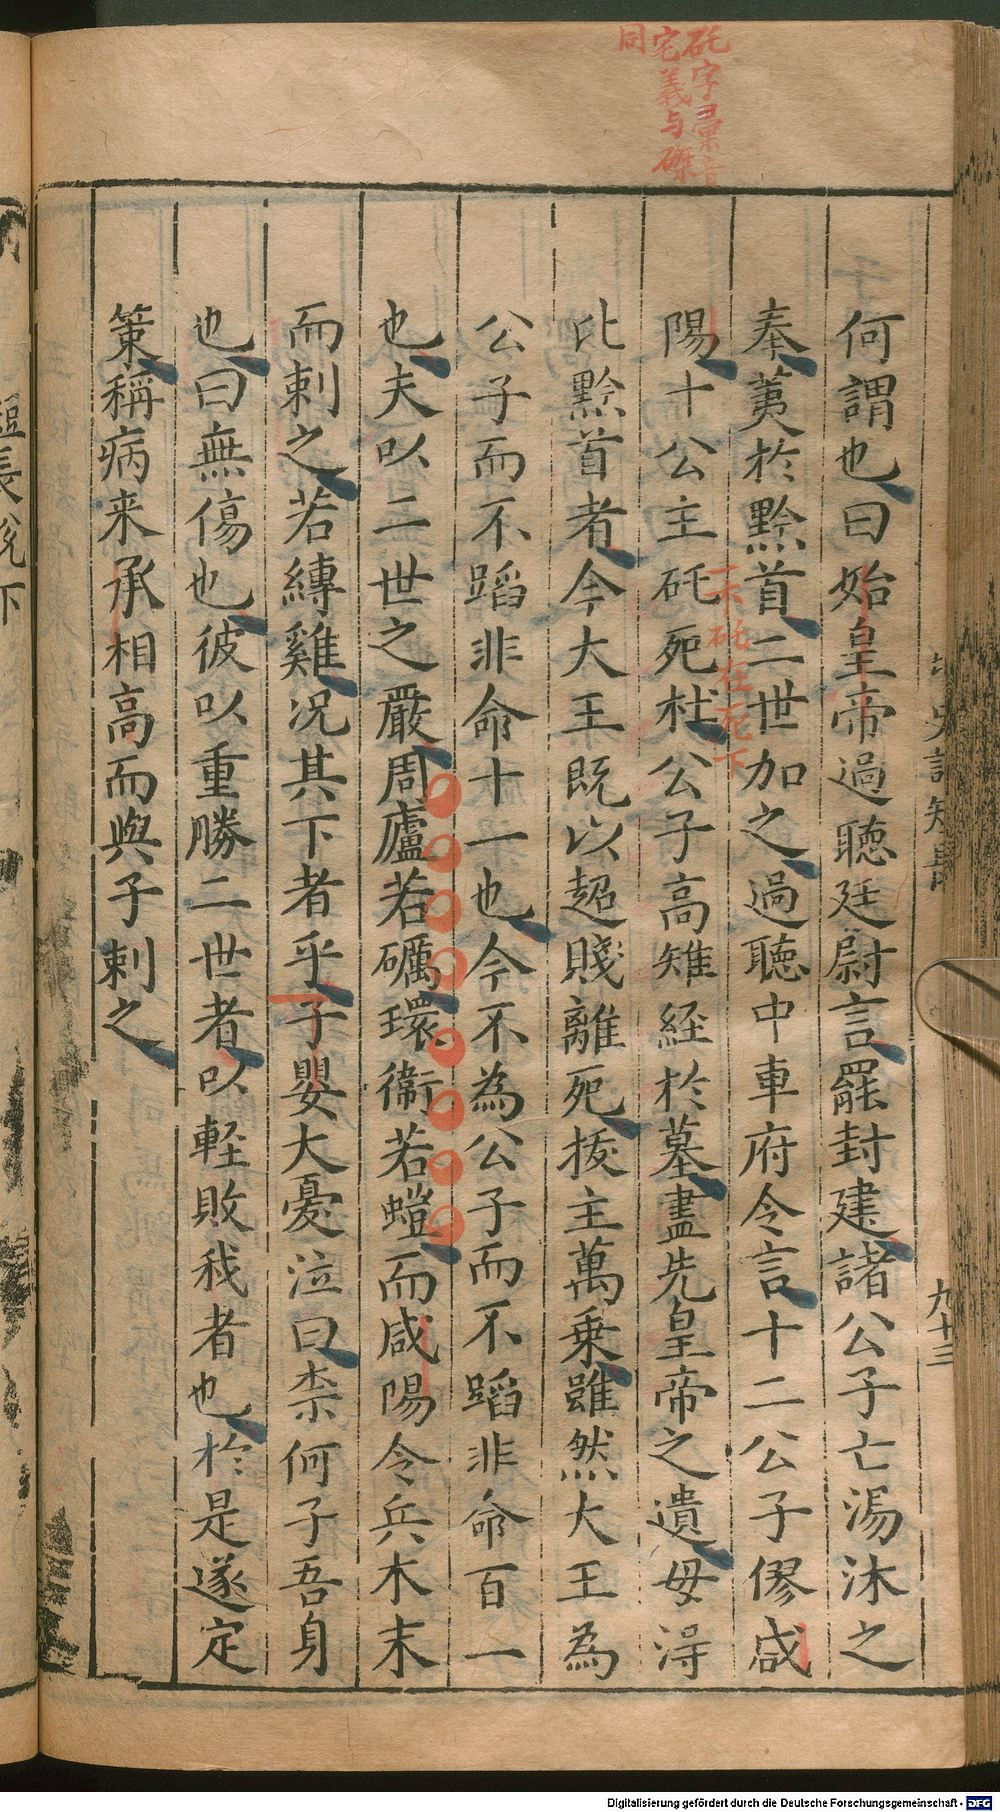 矺字彙音
宅義与磔
同
何謂也曰始皇帝過聽廷尉言罷封建諸公子亡湯沐之
奉荑於黔首二世加之過聽中車府令言十二公子僇咸
一本矺在死下
陽十公主矺死杜公子高雉経於墓盡先皇帝之遺毋淂
比黔首者今大王既以超賤離死抜主萬乗雖然大王為
公子而不蹈非命十一也今不為公子而不蹈非命百一
也夫以二世之嚴周廬若礪環衞若螘而咸陽令兵木末
而剌之若縳雞况其下者乎子嬰大憂泣曰柰何子吾身
也曰無傷也彼以重勝二世者以軽敗我者也於是遂定
策稱病来承相高而與子剌之
史記短長
九十三
短長說下
Digitalisierung gefördert durch die Deutsche Forschungsgemeinschaft - DFG